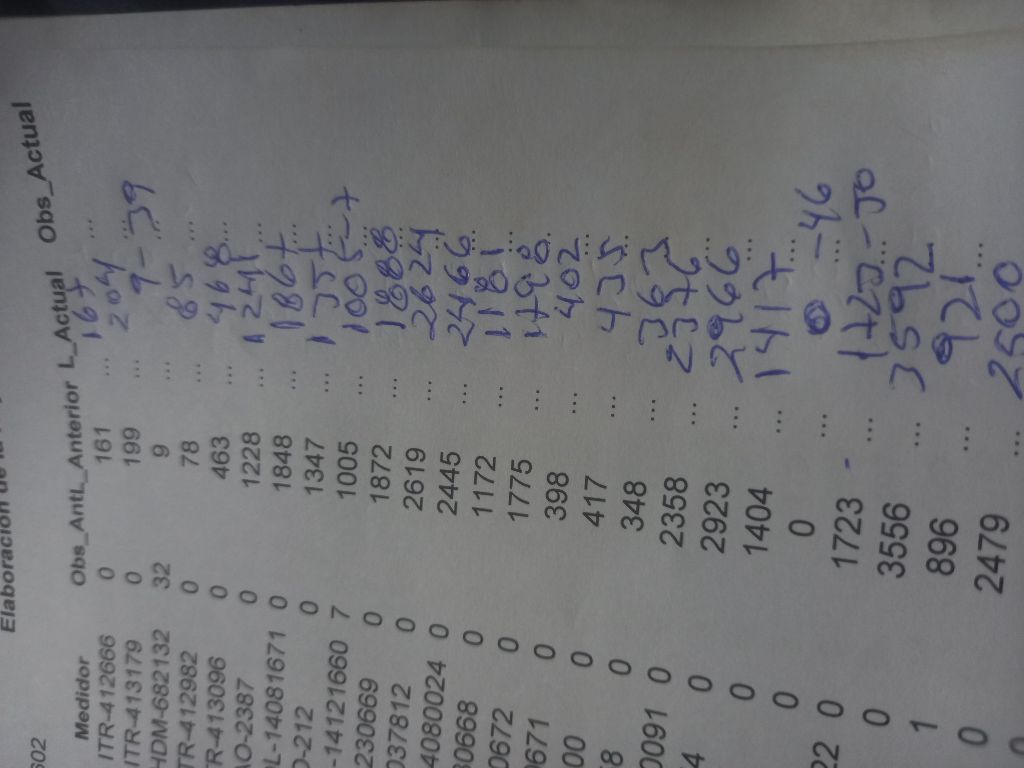 Elaboracion de la
602
Medidor Obs_AntL_Anterior L_Actual Obs_Actual
ITR-412666 0 161 ... 167 ...
ITR-413179 0 199 ... 204 ...
HDM-682132 32 9 ... 9 - 39
TR-412982 0 78 ... 85 ...
R-413096 0 463 ... 468 ...
AO-2387 0 1228 ... 1241 ...
L-14081671 0 1848 ... 1867 ...
O-212 0 1347 ... 1357 ...
-14121660 7 1005 ... 1005 - 7
230669 0 1872 ... 1888 ...
037812 0 2619 ... 2624 ...
4080024 0 2445 ... 2466 ...
30668 0 1172 ... 1181 ...
0672 0 1775 ... 1798 ...
0671 0 398 ... 402 ...
00 0 417 ... 435 ...
8 0 348 ... 363 ...
0091 0 2358 ... 2376 ...
4 0 2923 ... 2966 ...
0 1404 ... 1417 ...
0 0 ... 0 - 46
22 0 1723 ... 1725 - 50
0 3556 ... 3592
1 896 ... 921
0 2479 ... 2500 ...